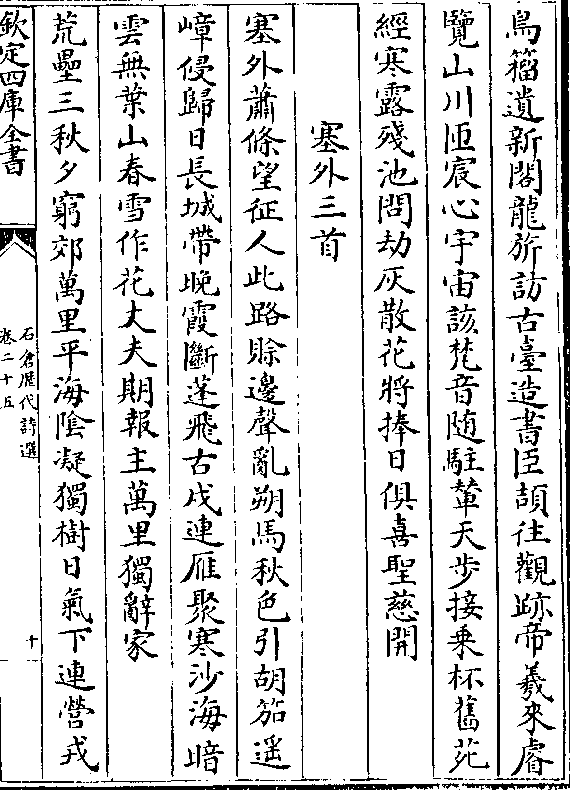 鳥籀遺新閣龍旂訪古臺造書臣頡往觀跡帝羲來睿
覽山川匝宸心宇宙該梵音随駐輦天步接乗杯舊苑
經寒露殘池問劫灰散花將捧日俱喜聖慈開
塞外三首
塞外蕭條望征人此路賒邊聲亂朔馬秋色引胡笳遥
嶂侵歸日長城帶晚霞斷蓬飛古戍連雁聚寒沙海暗
雲無葉山春雪作花丈夫期報主萬里獨辭家
荒壘三秋夕窮郊萬里平海陰凝獨樹日氣下連營戎
欽定四庫全書
石倉歷代詩選
卷二十五
十